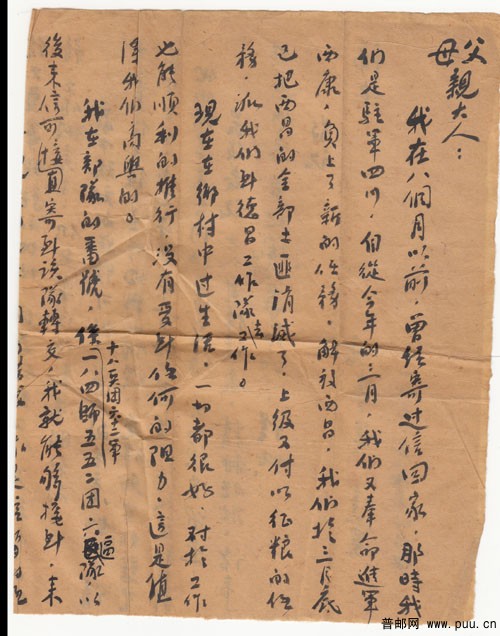 父母親大人：
我在八個月以前，曾経寄过信回家，那時我
们是駐軍四川，自從今年的三月，我们又奉命進軍
西康，負上了新的任務，解放西昌，我们於三月底
已把西昌的全部土匪消滅了，上级又付以征粮的任
務，派我们到德昌工作隊去工作。
现在在鄉村中过生活，一切都很好，对於工作
也能順利的推行，没有受到任何的阻力，這是值
得我们高興的。
我在部隊的番號，係十八兵团六二軍一八四師五五二团六隊，以
後来信可逕直寄到該隊轉交，我就能够接到，来
普邮网 www.puu.cn